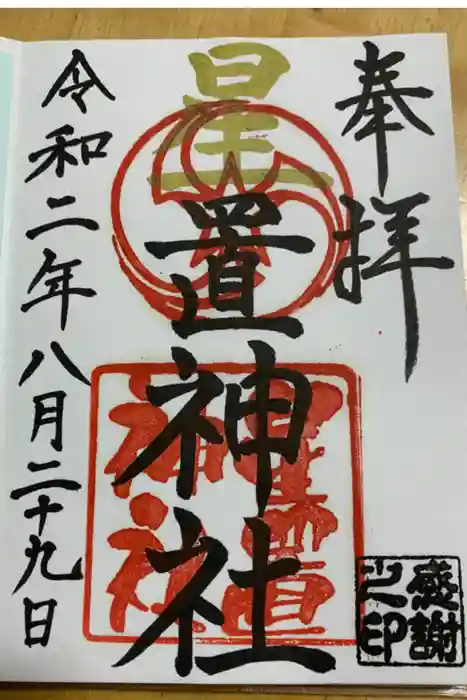 奉拝
星置神社
令和二年八月二十九日
星置神社
感謝之印